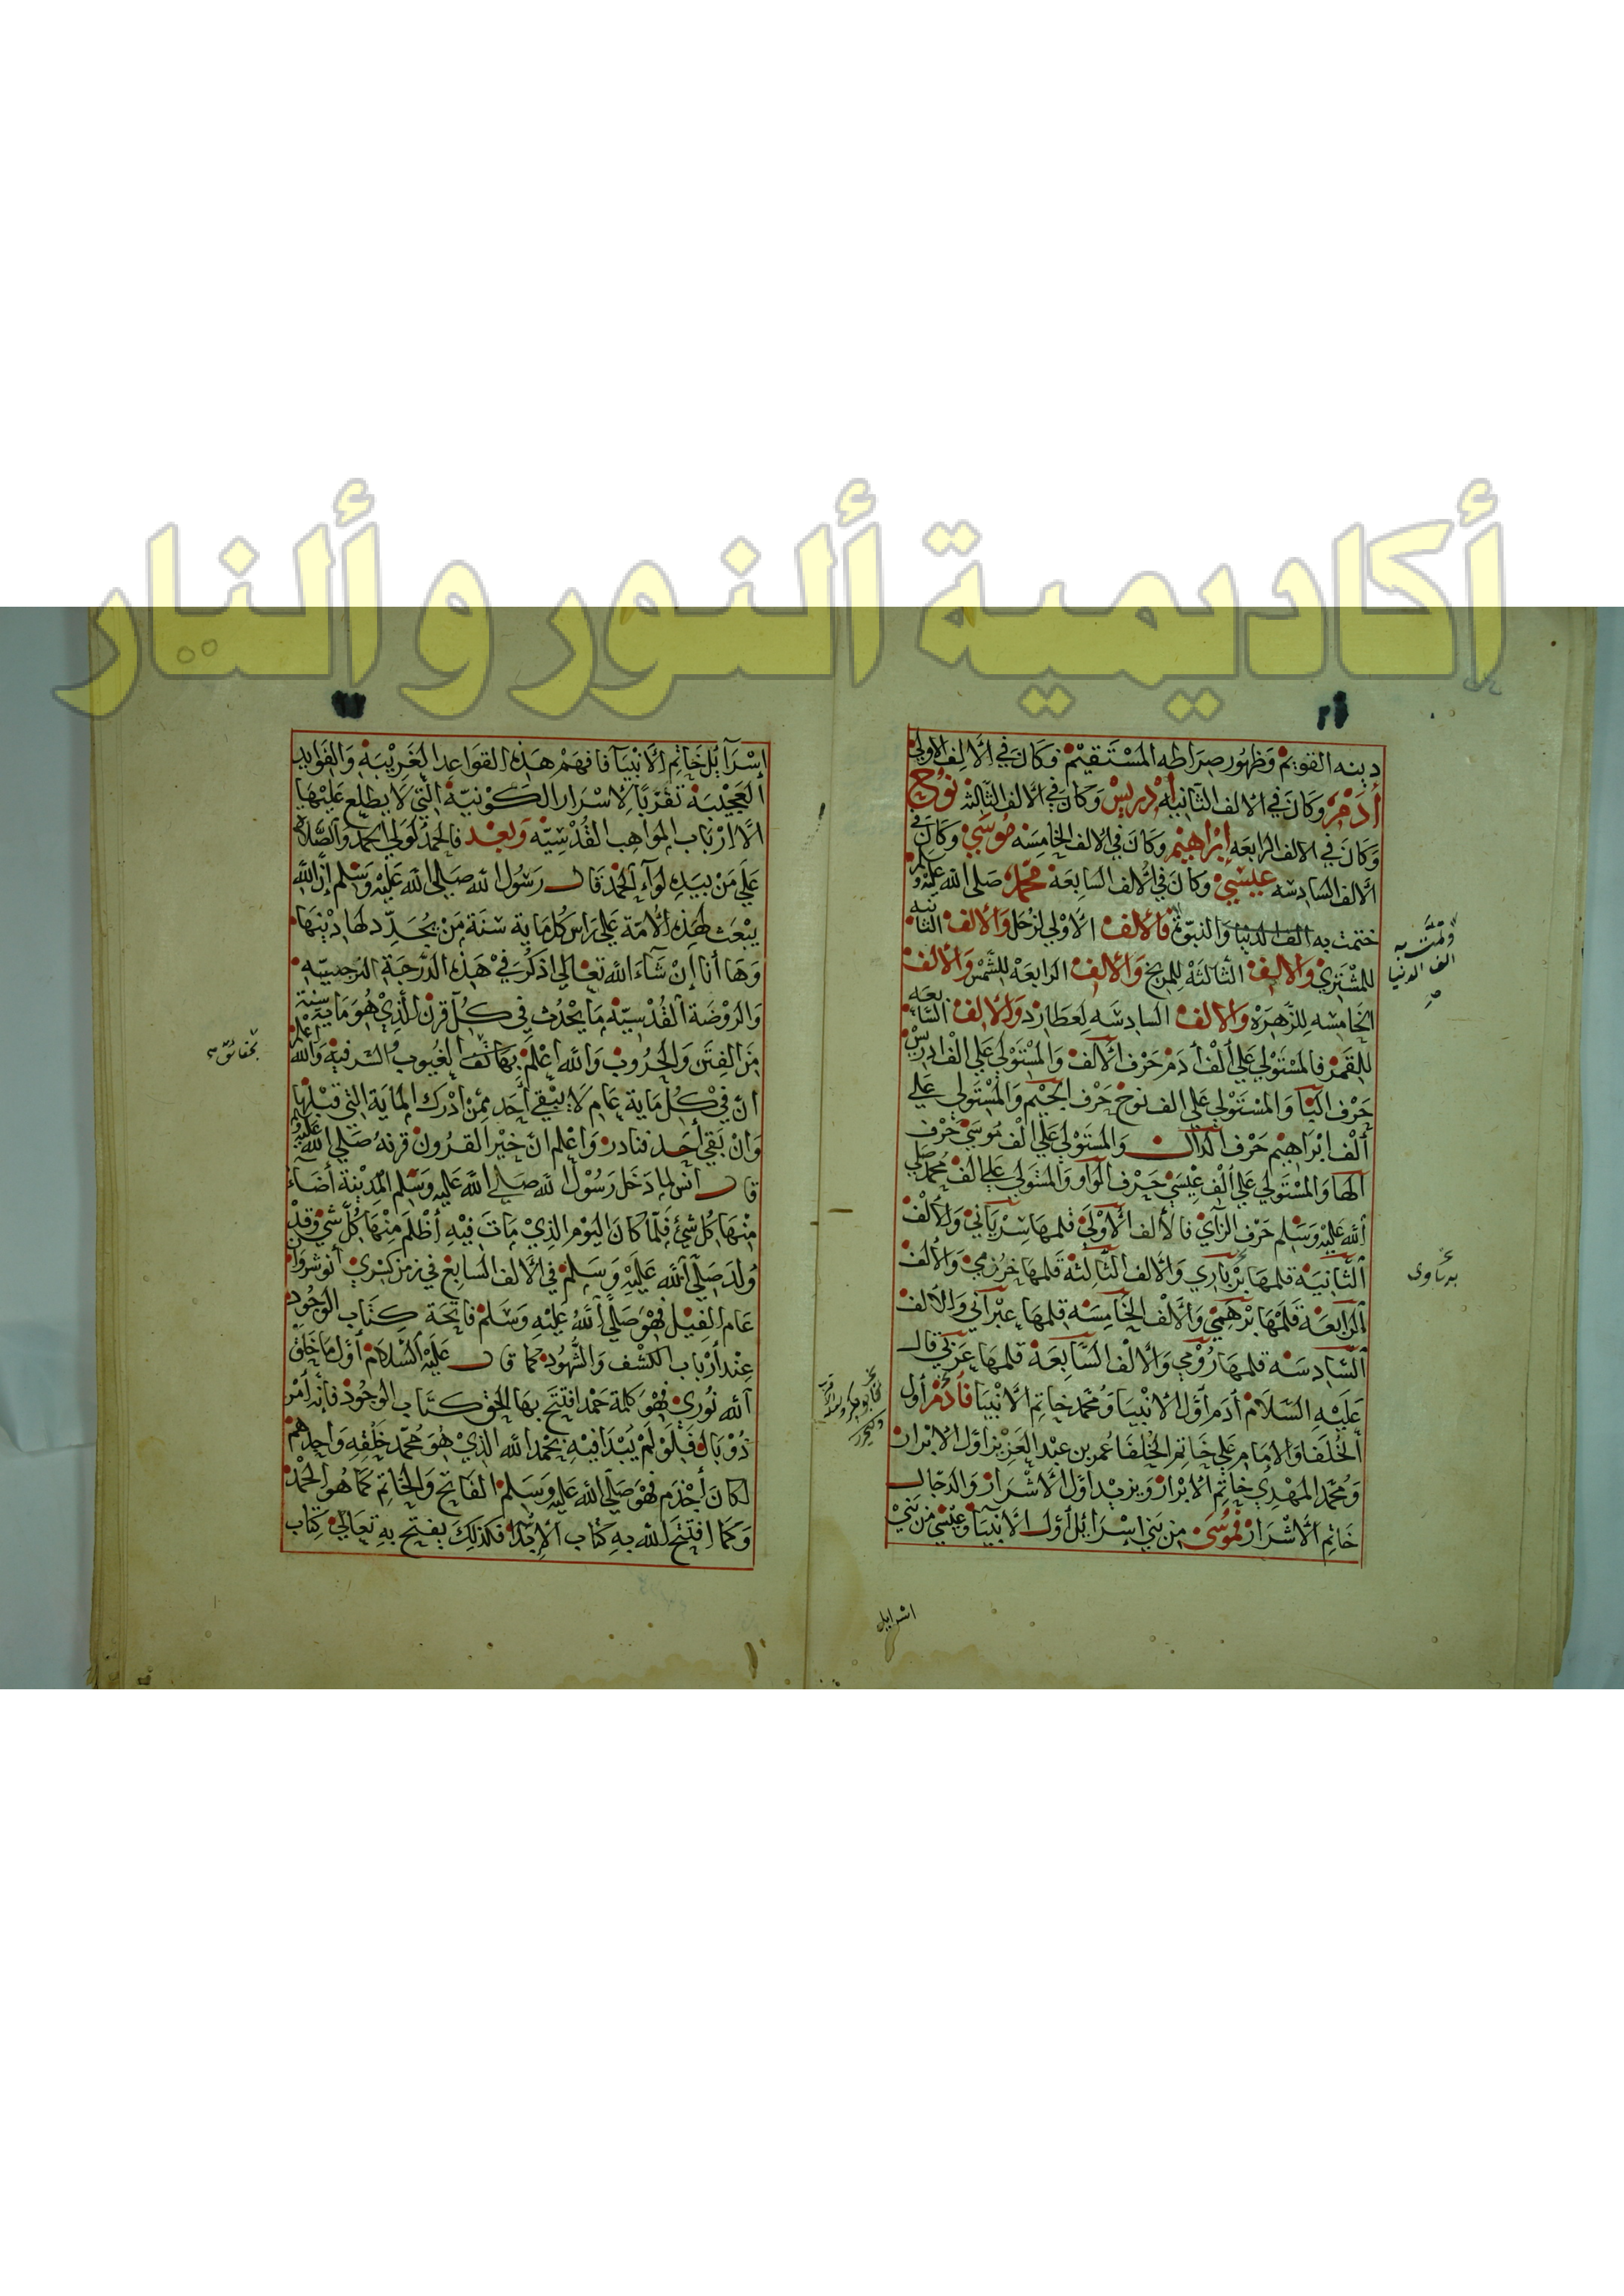 أكاديمية ألنور و ألنار
دينه القويم وظهور صراطه المستقيم فكان في الالف الاولى
أدمر وكان في الالف الثانيه إدريس وكان في الالف الثالثه نوح
وكان في الالف الرابعه إبراهيم وكان في الالف الخامسه موسى وكان في
الالف السادسه عيسى وكان في الالف السابعة محمد صلى الله عليه وسلم
ختمت به الف الدنيا والنبوة فالالف الاولى لزحل والالف الثانيه
للمشتري والالف الثالثة للمريخ والالف الرابعة للشمس والالف
الخامسه للزهرة والالف السادسه لعطارد والالف السابعه
للقمر فالمستولي على ألف أدم حرف الالف والمستولي على الف ادريس
حرف البا والمستولي على الف نوح حرف الجيم والمستولي على
ألف ابراهيم حرف الدال والمستولي على الف موسى حرف
الها والمستولي على ألف عيسى حرف الواو والمستولي على الف محمد صلى
الله عليه وسلم حرف الزاي فالألف الأولى قلمها سرياني والألف
الثانية قلمها بربارى والالف الثالثة قلمها خرزمي والالف
الرابعة قلمها برهمي والالف الخامسة قلمها عبراني والالف
السادسة قلمها رومي والالف السابعة قلمها عربي قال
عليه السلام أدم أول الانبيا ومحمد خاتم الانبيا فأدم أول
الخلفا والامام علي خاتم الخلفا عمر بن عبد العزيز اول الابرار
ومحمد المهدي خاتم الابرار ويزيد اول الاشرار والدجال
خاتم الاشرار فموسى من بني إسرائيل أول الانبيا وعيسى من بني
اسرايل
وتمت به
الف الدنيا
صح
إسرآئل خاتم الانبيا فافهم هذه القواعد الغريبة والفوايد
العجيبة تفز بالاسرار الكونية التي لا يطلع عليها
الا ارباب المواهب القدسيه وبعد فالحمد لولي الحمد والصلاة
على من بيده لوآء الحمد قال رسول الله صلى الله عليه وسلم ان الله
يبعث لهذه الأمة على راس كل ماية سنة من يجدد لها دينها
وها أنا إن شاء الله تعالى اذكر في هذه الدرجة الرجبيه
والروضة القدسية ما يحدث في كل قرن الذي هو ماية سنة
من الفتن والحروب والله اعلم بهاتف الغيوب والله اعلم
ان في كل ماية عام لا يبقى أحد ممن أدرك الماية التي قبلها
وان بقي أحد فنادر واعلم ان خير القرون قرنه صلى الله عليه
قال انس لما دخل رسول الله صلى الله عليه وسلم المدينة أضاء
منها كل شئ فلما كان اليوم الذي مات فيه أظلم منها كل شي وقد
ولد صلى الله عليه وسلم في الالف السابع في زمن كسرى أنوشروان
عام الفيل فهو صلى الله عليه وسلم فاتحة كتاب الوجود
عند أرباب الكشف والشهود كما قال عليه السلام أول ما خلق
الله نوري فهو كلمة حمد افتتح بها الحق كتاب الوجود فإنه أمر
ذو بال فلو لم يبدا فيه بحمد الله الذي هو محمد خلقه واحدهم
لكان أجذم فهو صلى الله عليه وسلم الفاتح والخاتم كما هو الحمد
وكما افتتح الله به كتاب الابدا فكذلك يفتح به تعالى كتاب